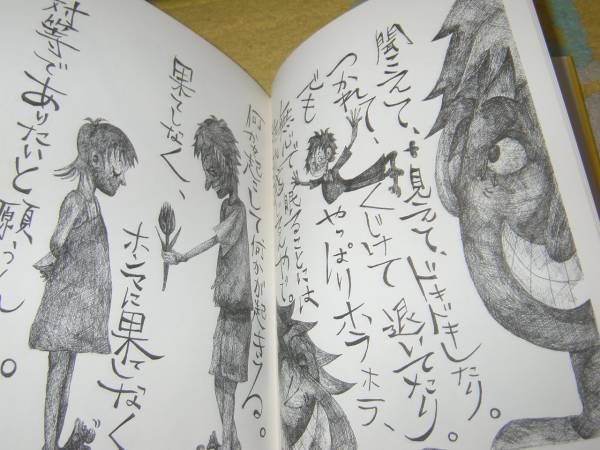 聞えて、見えて、ドキドキしたり。
つかれて、くじけて退いてたり。
でもやっぱりホラホラ、
眠ることには
何かを起こして何かが起きてる。
果てしなく、
ホンマに果てしなく
対等でありたいと願っ